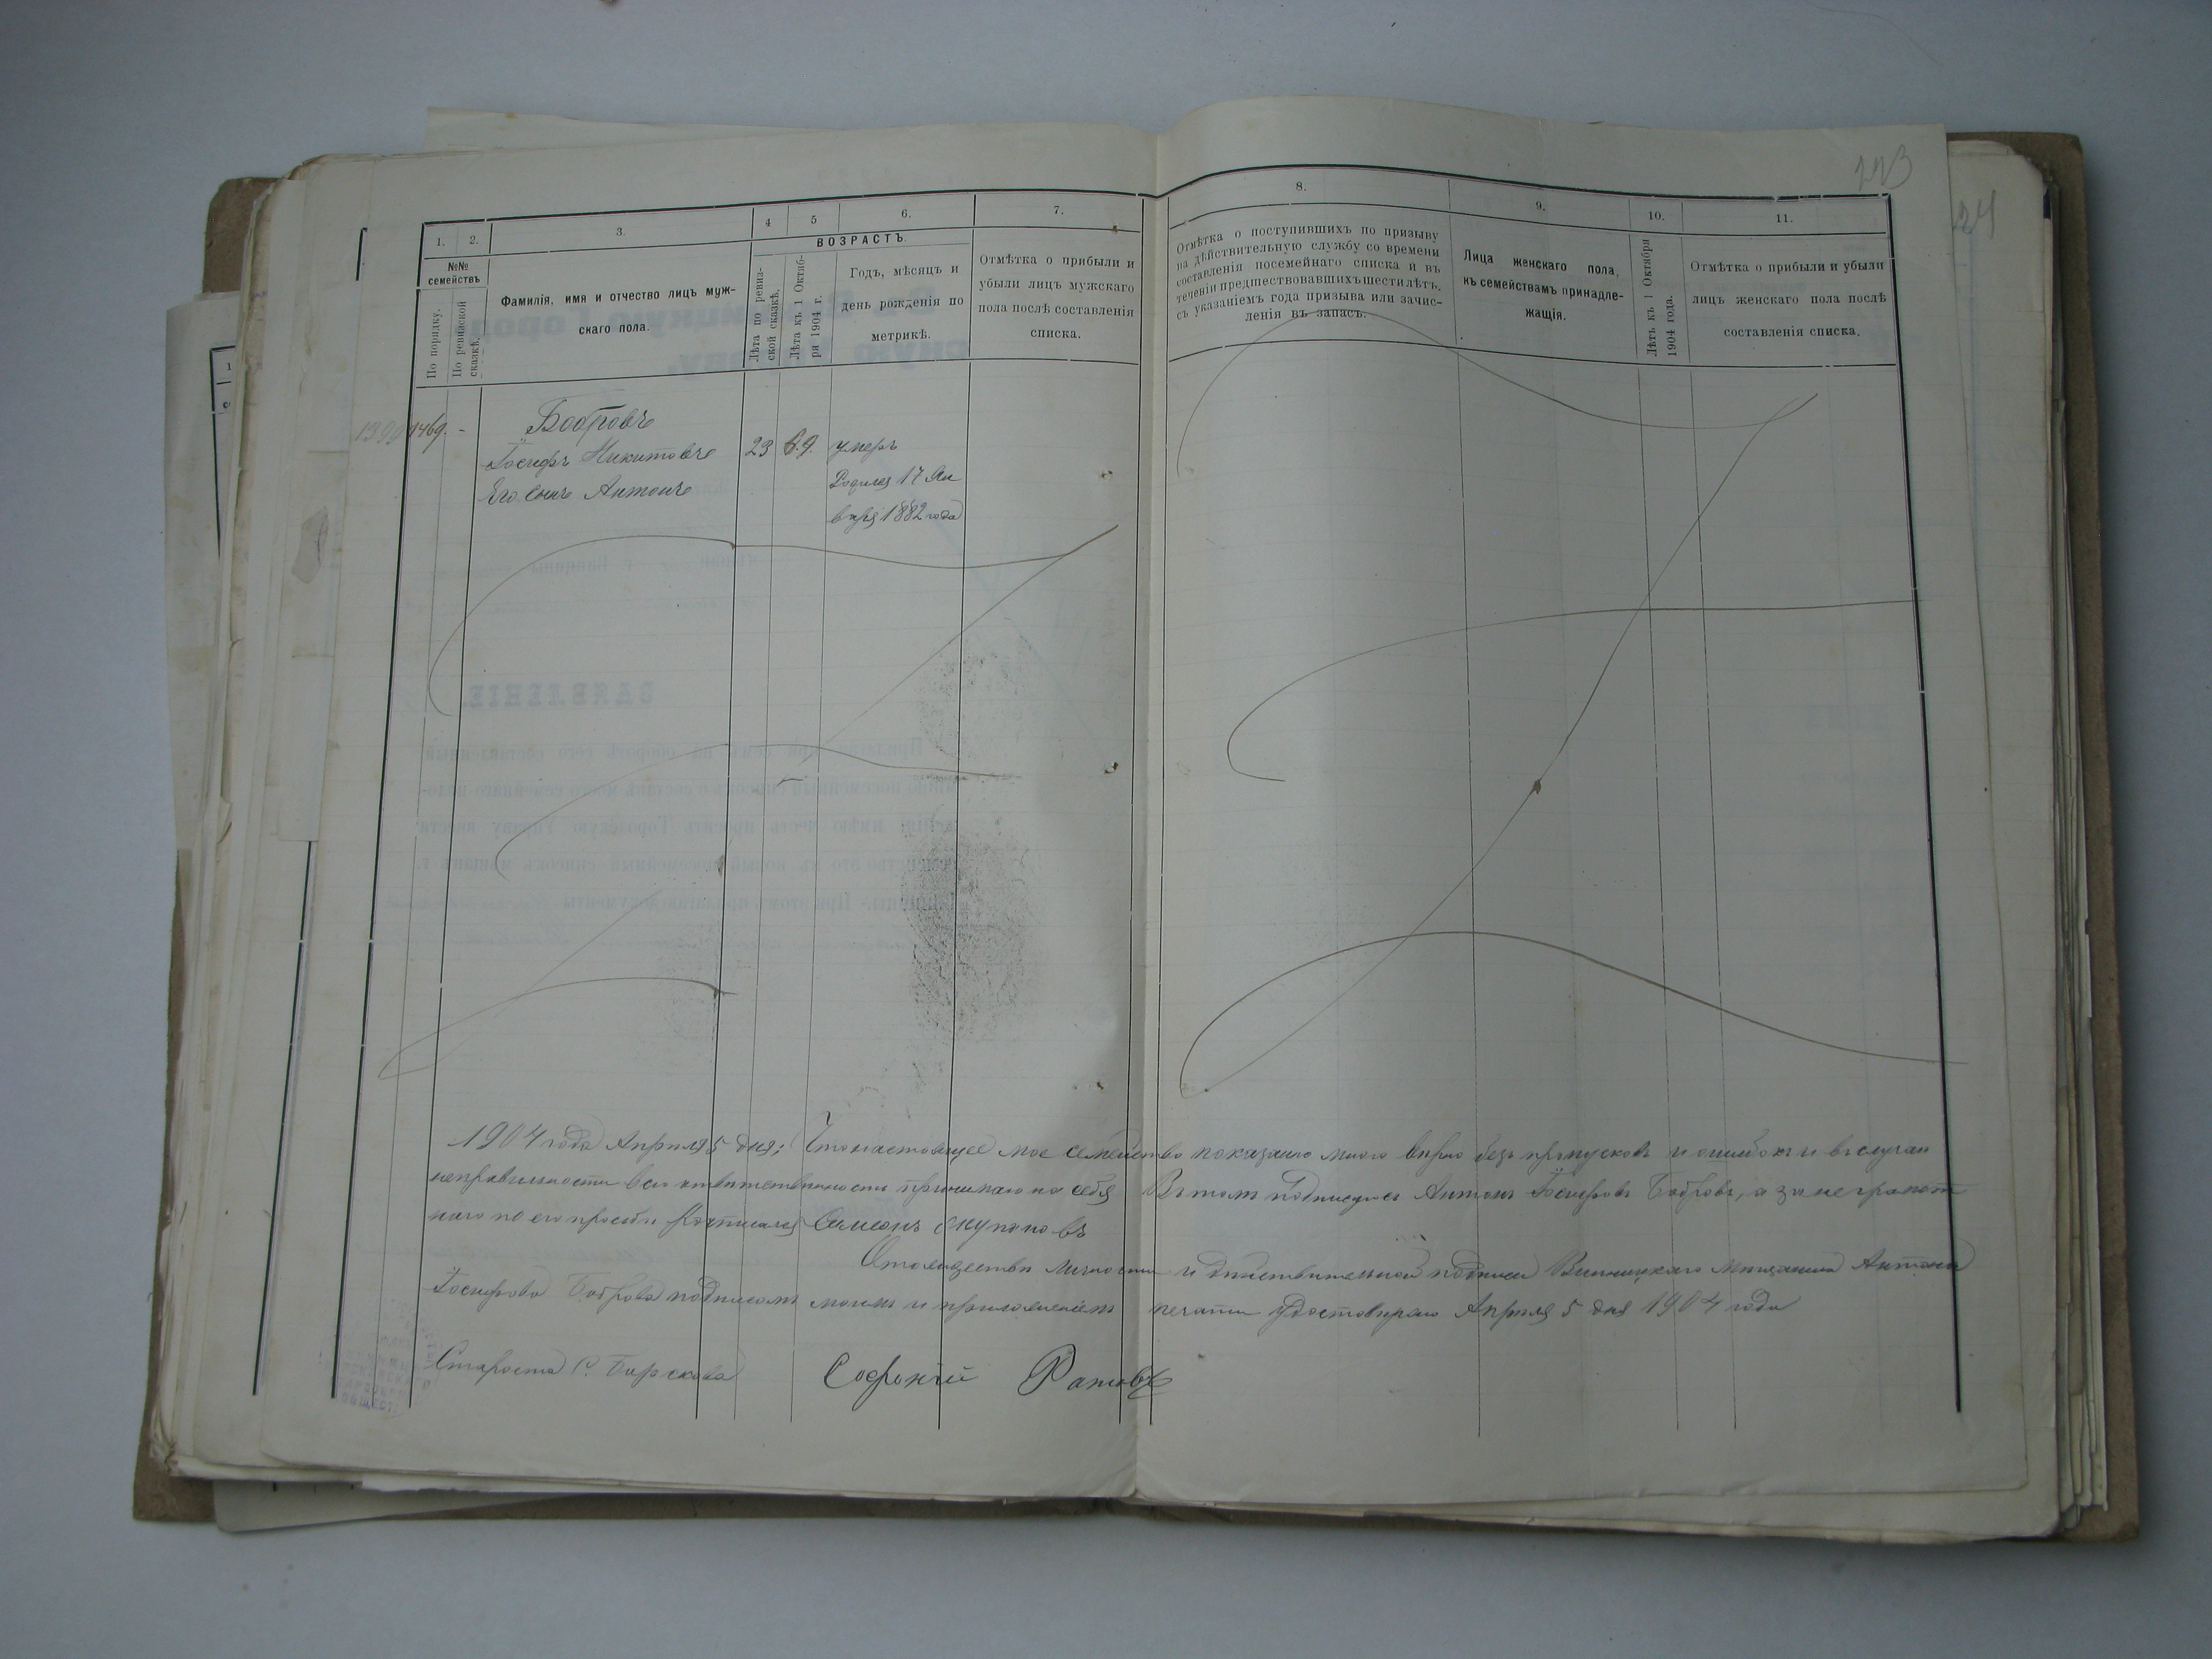 123
124
1.
2.
3.
4
5
6.
7.
8.
9.
10.
11.
№№ семействъ
По порядку.
По ревизской сказкѣ.
Фамилія, имя и отчество лицъ муж-
скаго пола.
ВОЗРАСТЪ.
Лѣта по ревиз-
ской сказкѣ.
Лѣта къ 1 Октяб-
ря 1904 г.
Годъ, мѣсяцъ и
день рожденія по
метрикѣ.
Отмѣтка о прибыли и
убыли лицъ мужскаго
пола послѣ составленія
списка.
Отмѣтка о поступившихъ по призыву
на дѣйствительную службу со времени
составленія посемейнаго списка и въ
теченіи предшествовавшихъ шести лѣтъ,
съ указаніемъ года призыва или зачис-
ленія въ запасъ.
Лица женскаго пола,
къ семействамъ принадле-
жащія.
Лѣтъ къ 1 Октября
1904 года.
Отмѣтка о прибыли и убыли
лицъ женскаго пола послѣ
составленія списка.
1469. -
Бобровъ
Іосифъ Никитовъ 23 умеръ
Его сынъ Антонъ Родился 17 Ян
варя 1882 года
1904 года Апреля 5 дня; Что настоящее мое семейство показано мною вѣрно безъ пропусковъ и ошибокъ и въ случаи
неправильности всю отвѣтственность принимаю на себя Въ томъ подписуюсь Антонъ Іосифовъ Бобровъ, а за неграмот
наго по его прозьби Росписался Семенъ
личности и дѣйствительной подписи Винницкаго Мѣщанина Антона
Іосифова Боброва подписомъ моимъ и приложеніемъ печати удостовѣряю Апреля 5 дня 1904 года
Староста С.
Софоній